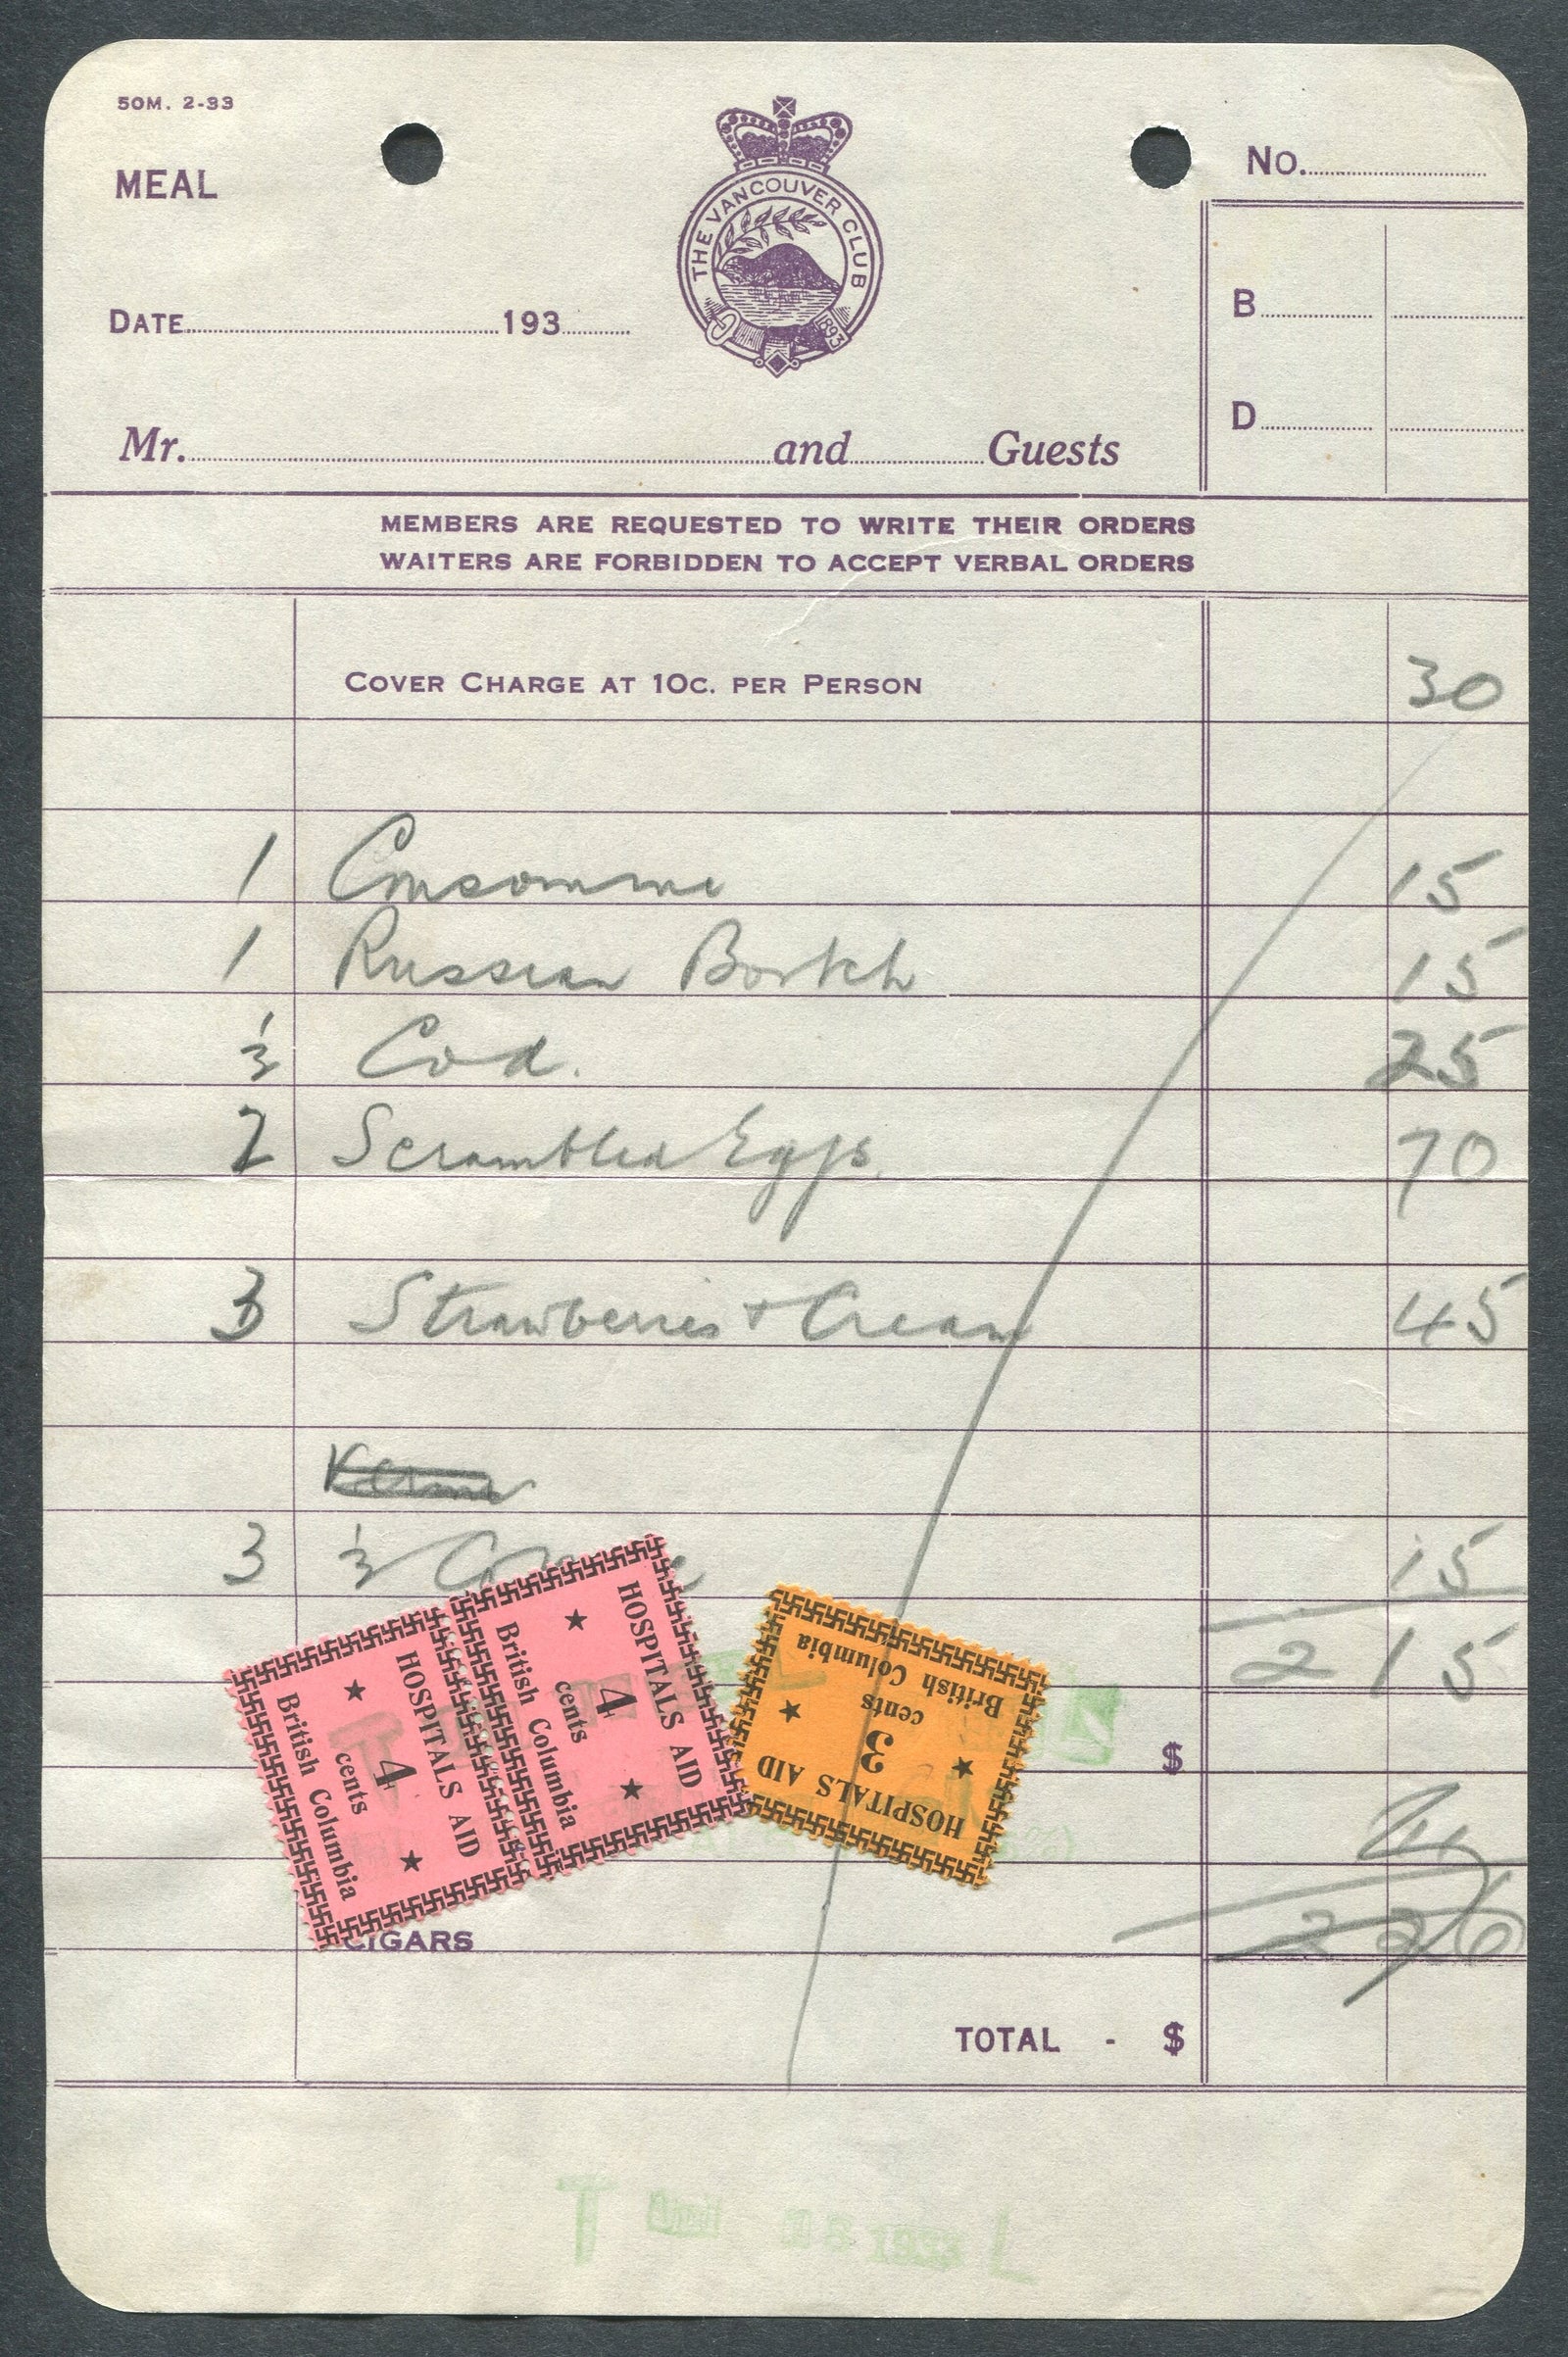 50M. 2-33
MEAL
No.
THE VANCOUVER CLUB
1893
B
DATE 193
D
Mr. and Guests
MEMBERS ARE REQUESTED TO WRITE THEIR ORDERS
WAITERS ARE FORBIDDEN TO ACCEPT VERBAL ORDERS
COVER CHARGE AT 10C. PER PERSON 30
1 Consomme 15
1 Russian Bortch 15
½ Cod. 25
2 Scrambled Eggs 70
3 Strawberries + Cream 45
3 ½ 15
2 15
HOSPITALS AID
4
cents
British Columbia
HOSPITALS AID
4
cents
British Columbia
HOSPITALS AID
3
cents
British Columbia
$
11
2 26
CIGARS
TOTAL - $